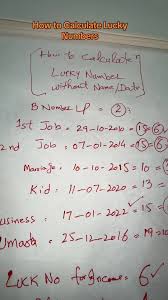 How to Calculate Lucky
Numbers
How to Calculate
Lucky Number
without Name/Date
B Number LP = 2
1st Job = 29-10-2010 = 15 = 6
2nd Job = 07-01-2014 = 15 = 6
Marriage = 10-10-2015 = 10 =
Kid = 11-07-2020 = 13 =
usiness = 17-01-2022 = 15
Umrah = 25-12-2016 = 19
Luck No for Income = 6